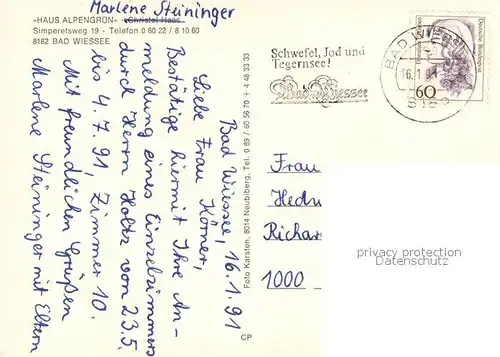 Marlene Steininger
-HAUS ALPENGRÜN- Christel Haas
Simperetsweg 19 - Telefon 0 80 22 / 8 10 60
8182 BAD WIESSEE
Bad Wiessee, 16.1.91
Liebe Frau Körner,
Bestätige hiermit Ihre An-
meldung eines Einzelzimmers
durch Herrn Holtz vom 23.5.
bis 4.7.91, Zimmer 10.
Mit freundlichen Grüßen
Marlene Steininger mit Eltern
Foto Karsten, 8014 Neubiberg, Tel. 0 89 / 60 56 70 + 4 48 33 33
CP
Schwefel, Jod und
Tegernsee!
Bad Wiessee
BAD WIESSEE
16.1.91
8182
Deutsche Bundespost
60
Frau
Hedw
Richar
1000
privacy protection
Datenschutz